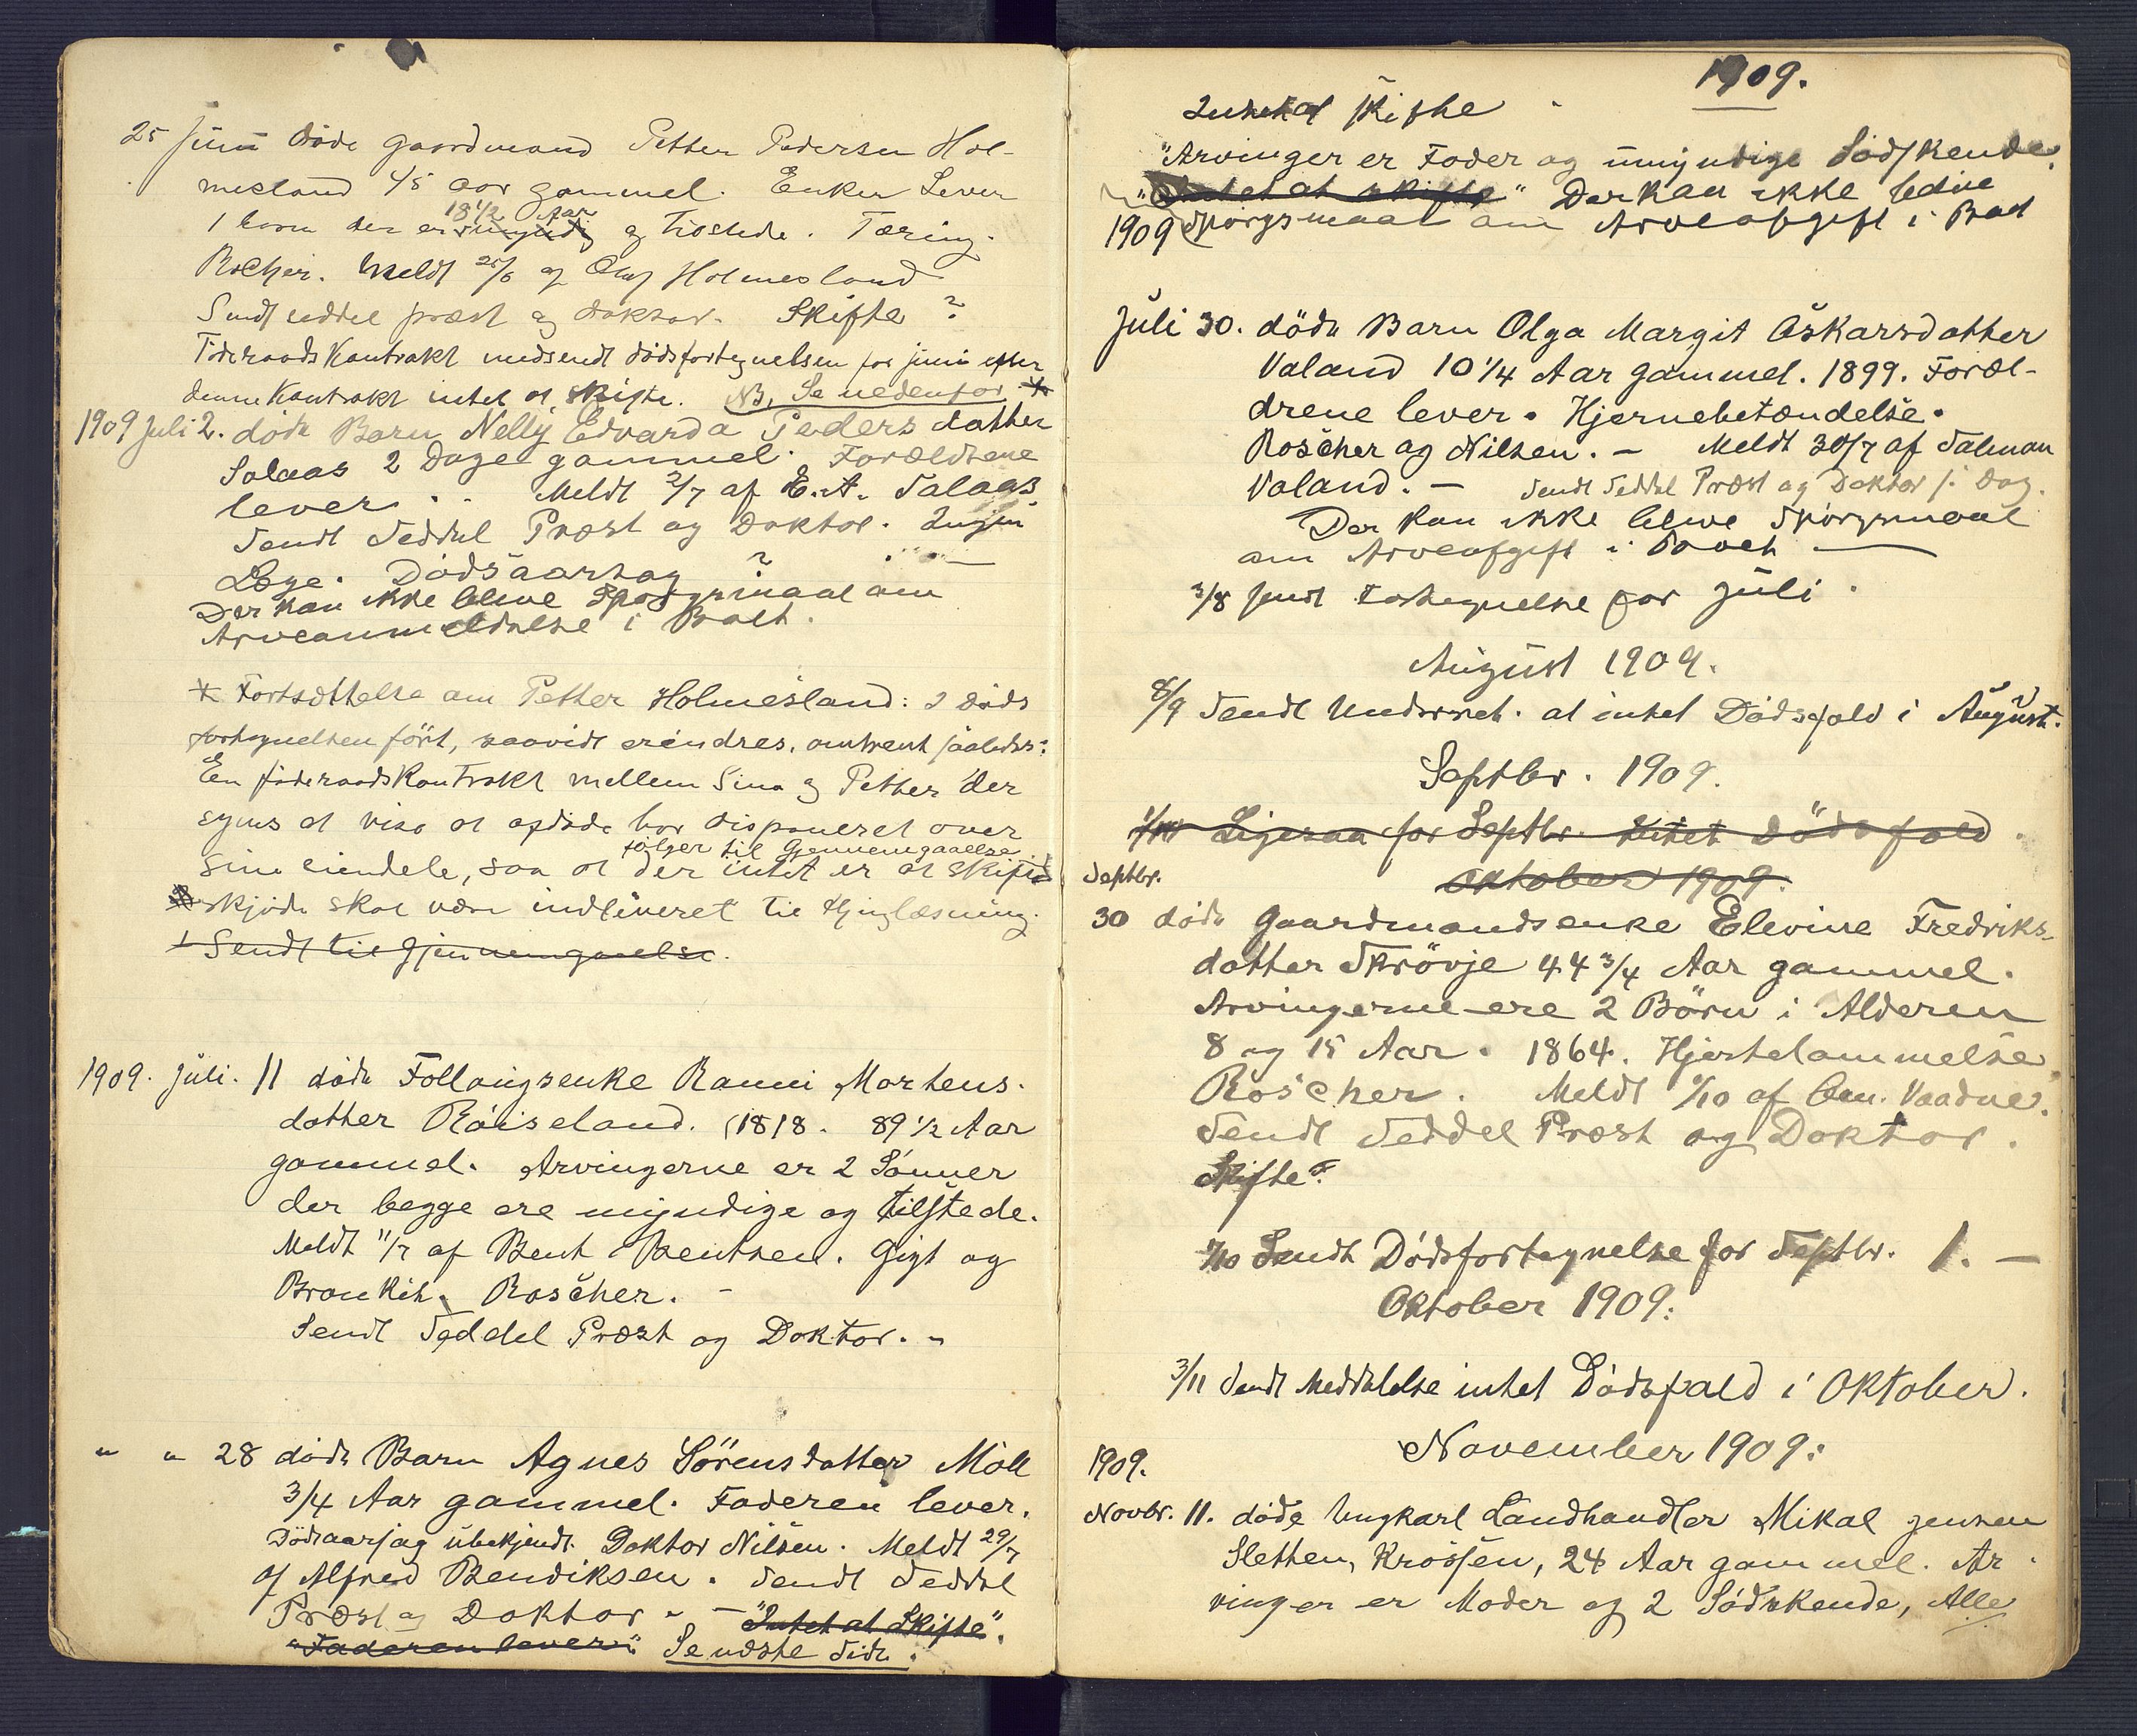 25 Juni döde gaardmand Petter Pedersen Hol-
mesland 45 aar gammel. Enken Lever
18 1/2 Aar
1 barn der er umyndig og tilstede. Tæring.
Roscher. Meldt 25/6 af Olaf Holmesland
Sendt seddel præst og doktor. Skifte?
Föderaads Kontrakt medsendt dödsfortegnelsen for juni efter
denne Kontrakt intet at skifte. NB. Se nedenfor *
1909 Juli 2. döde Barn Nelly Edvarda Peders datter
Salaas 2 Dage gammel. Forældrene
lever. Meldt 2/7 af E. A. Salaas
Sendt Seddel Præst og Doktor. Ingen
Læge. Dödsaarsag ?
Der kan ikke blive Spörgsmaal om
Arveanmeldelse i Boet.
* Fortsættelse om Petter Holmesland: I döds
fortegnelsen fört, saavidt erindres, omtrent saaledes:
En föderaadskontrakt mellem Sina og Petter der
synes at vise at afdöde har disponeret over
fölger til Gjennemgaaelse
sine eiendele, saa at der intet er at skifte
skjöde skal være indleveret til thinglæsning.
Sendt til gjennemgaaelse.
1909. Juli. 11 döde Follaugsenke Ranni Mortens-
datter Röiseland. (1818. 89 1/2 Aar
gammel. Arvingerne er 2 Sönner
der begge ere myndige og tilstede.
Meldt 11/7 af Bent Bentsen. Gigt og
Bronkit. Roscher. -
Sendt Seddel Præst og Doktor. -
" " 28 döde Barn Agnes Sörensdatter Möll
3/4 Aar gammel. Faderen lever.
Dödsaarsag ubekjendt. Doktor Nilsen. Meldt 29/7
af Alfred Bendiksen. Sendt Seddel
Præst og Doktor - "Intet at Skifte".
"Faderen lever" Se næste Side.
1909.
Intet at skifte
"Arvinger er Fader og umyndige Södskende.
"Intet at skifte" Der kan ikke blive
1909 Spörgsmaal om Arveafgift i Boet
Juli 30. döde Barn Olga Margit Oskarsdatter
Valand 10 1/4 Aar gammel. 1899. Foræl-
drene lever. Hjernebetændelse.
Roscher og Nilsen. - Meldt 30/7 af Salman
Valand. - Sendt Seddel Præst og Doktor i Dag.
Der kan ikke blive Spörgsmaal
om Arveafgift i Boet
3/8 Sendt Fortegnelse for Juli.
August 1909.
8/9 Sendt Underret. at intet Dödsfald i August.
Septbr. 1909.
1/10 Ligesaa for Septbr. intet Dödsfald
Septbr.
Oktober 1909.
30 döde Gaardmandsenke Elevine Fredriks-
datter Skröyje 44 3/4 Aar gammel.
Arvingerne ere 2 Börn i Alderen
8 og 15 Aar. 1864. Hjertelammelse
Roscher. Meldt 1/10 af Om. Vaadne.
Sendt Seddel Præst og Doktor.
Skifte?
1/10 Sendt Dödsfortegnelse for Septbr. 1. -
Oktober 1909.
3/11 Sendt Meddelelse intet Dödsfald i Oktober.
November 1909:
1909.
Novbr. 11. döde Ungkarl Landhandler Mikal Jensen
Sletten, Krossen, 24 Aar gammel. Ar-
vinger er Moder og 2 Södskende, Alle